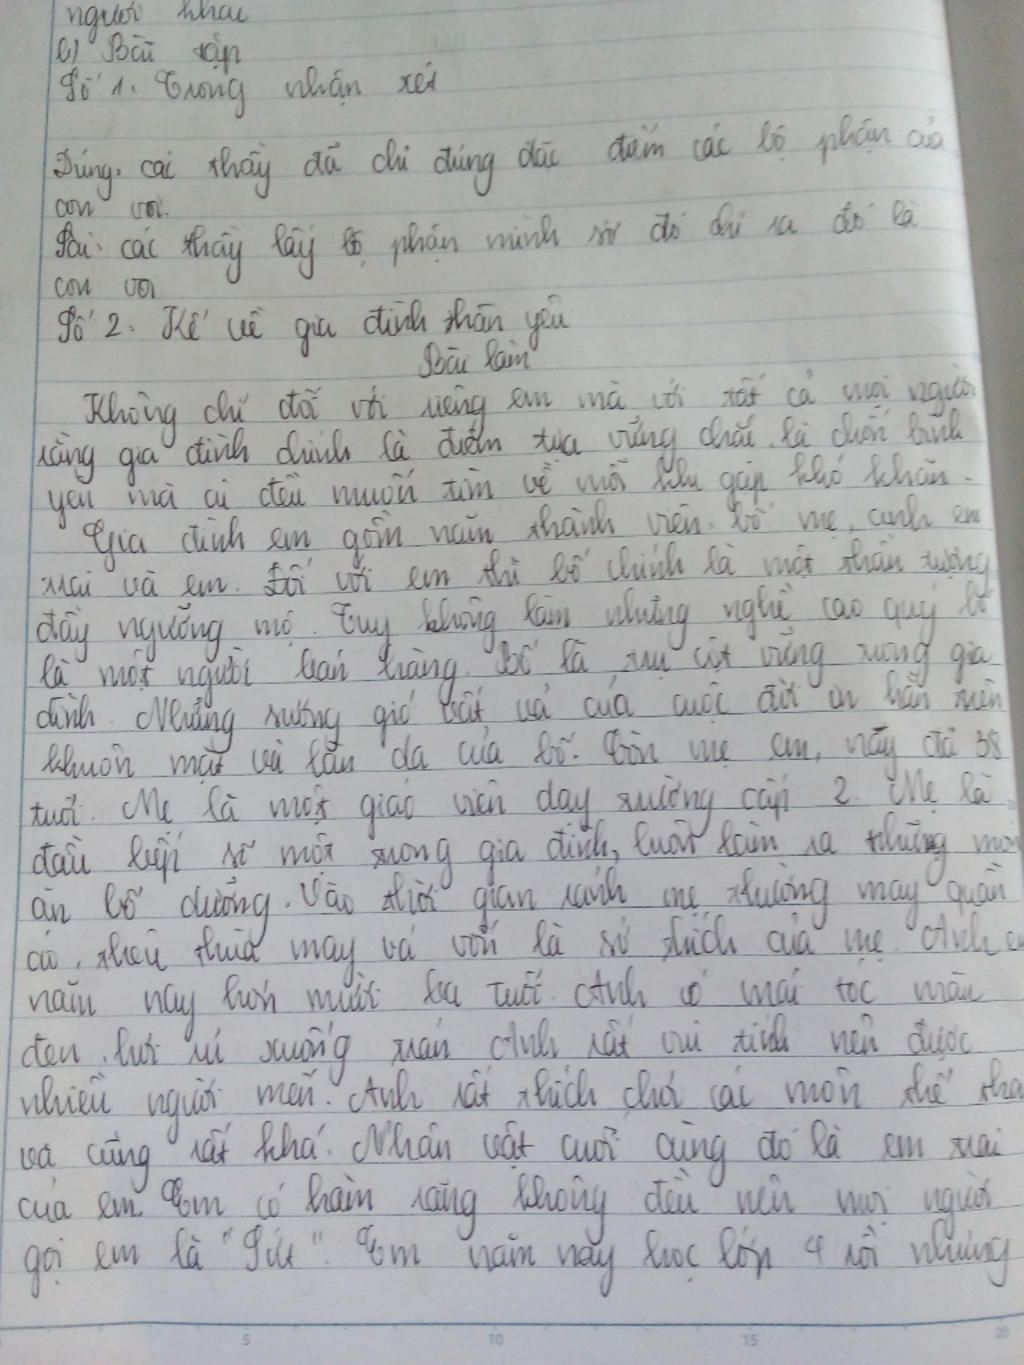 người khác
b) Bài tập
Số 1. Trong nhận xét
Đúng: các thầy đã chỉ đúng đặc điểm các bộ phận của
con voi.
Sai: các thầy lấy bộ phận mình sờ đó chỉ ra đó là
con voi
Số 2. Kể về gia đình thân yêu
Bài làm
Không chỉ đối với riêng em mà với tất cả mọi người
rằng gia đình chính là điểm tựa vững chắc, là chốn bình
yên mà ai đều muốn tìm về mỗi khi gặp khó khăn.
Gia đình em gồm năm thành viên: bố mẹ, anh em
trai và em. Đối với em thì bố chính là một thần tượng
đầy ngưỡng mộ. Tuy không làm những nghề cao quý bố
là một người bán hàng. Bố là trụ cột vững trong gia
đình. Những sương gió vất vả của cuộc đời in hằn trên
khuôn mặt và làn da của bố. Còn mẹ em, nay đã 38
tuổi. Mẹ là một giáo viên dạy trường cấp 2. Mẹ là
đầu bếp số một trong gia đình, luôn làm ra những món
ăn bổ dưỡng. Vào thời gian rảnh mẹ thường may quần
áo, thêu thùa may vá vốn là sở thích của mẹ. Anh em
năm nay hơn mười ba tuổi. Anh có mái tóc màu
đen, hơi rủ xuống trán. Anh rất vui tính nên được
nhiều người mến. Anh rất thích chơi các môn thể tha
và cũng rất khá. Nhân vật cuối cùng đó là em trai
của em. Em có hàm răng không đều nên mọi người
gọi em là "Sứt". Em năm nay học lớp 4 rồi nhưng
5 10 15 20